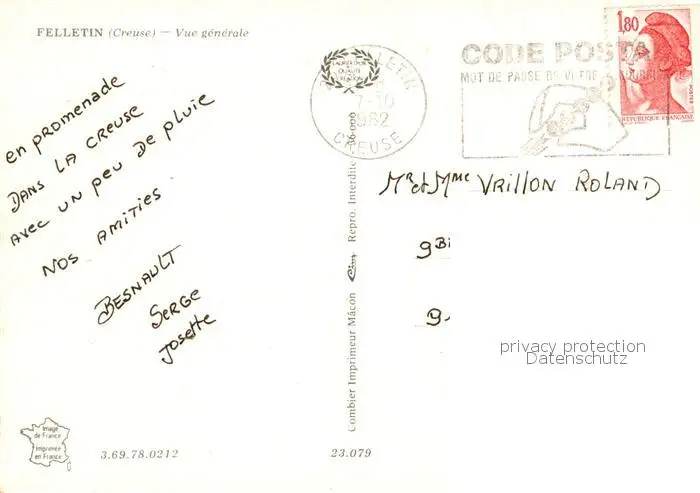 FELLETIN (Creuse) — Vue générale
en promenade
DANS LA CREUSE
avec UN PEU DE PLUIE
NOS AMITIES
BESNAULT
SERGE
Josette
Image
de France
Imprimée
en France
3.69.78.0212
23.079
Combier Imprimeur Mâcon Cim Repro. Interdite
QUALITE
7-10
1982
CREUSE
CODE POSTA
MOT DE PASSE DE
1,80
POSTES
REPUBLIQUE FRANÇAISE
Mr et Mme VRILLON ROLAND
9Bi
9
privacy protection
Datenschutz